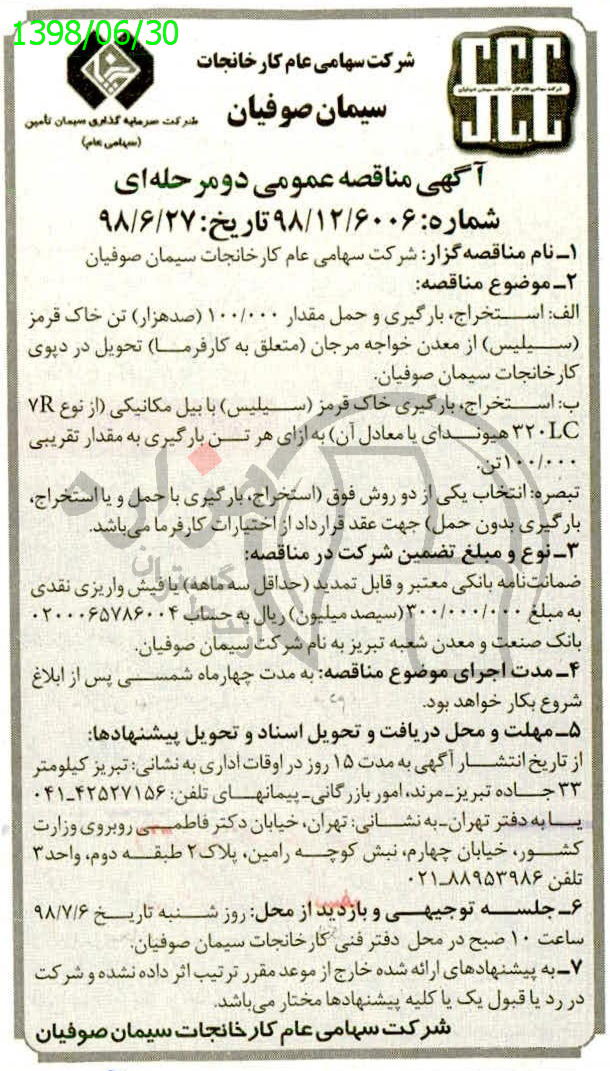 1398/06/30
شرکت سهامی عام کارخانجات
سیمان صوفیان
S.C.C
شرکت سهامی عام کارخانجات سیمان صوفیان
شرکت سرمایه گذاری سیمان تأمین
(سهامی عام)
آگهی مناقصه عمومی دومرحله‌ای
شماره: ۹۸/۱۲/۶۰۰۶ تاریخ: ۹۸/۶/۲۷
۱ـ نام مناقصه‌گزار: شرکت سهامی عام کارخانجات سیمان صوفیان
۲ـ موضوع مناقصه:
الف: استخراج، بارگیری و حمل مقدار ۱۰۰/۰۰۰ (صدهزار) تن خاک قرمز
(سیلیس) از معدن خواجه مرجان (متعلق به کارفرما) تحویل در دپوی
کارخانجات سیمان صوفیان.
ب: استخراج، بارگیری خاک قرمز (سیلیس) با بیل مکانیکی (از نوع ۷R
۳۲۰LC هیوندای یا معادل آن) به ازای هر تن بارگیری به مقدار تقریبی
۱۰۰/۰۰۰ تن.
تبصره: انتخاب یکی از دو روش فوق (استخراج، بارگیری با حمل و یا استخراج،
بارگیری بدون حمل) جهت عقد قرارداد از اختیارات کارفرما می‌باشد.
۳ـ نوع و مبلغ تضمین شرکت در مناقصه:
ضمانت‌نامه بانکی معتبر و قابل تمدید (حداقل سه ماهه) یا فیش واریزی نقدی
به مبلغ ۳۰۰/۰۰۰/۰۰۰ (سیصد میلیون) ریال به حساب ۰۲۰۰۰۶۵۷۸۶۰۰۴
بانک صنعت و معدن شعبه تبریز به نام شرکت سیمان صوفیان.
۴ـ مدت اجرای موضوع مناقصه: به مدت چهارماه شمسی پس از ابلاغ
شروع بکار خواهد بود.
۵ـ مهلت و محل دریافت و تحویل اسناد و تحویل پیشنهادها:
از تاریخ انتشار آگهی به مدت ۱۵ روز در اوقات اداری به نشانی: تبریز کیلومتر
۳۳ جاده تبریز ـ مرند، امور بازرگانی ـ پیمانهای تلفن: ۴۲۵۲۷۱۵۶ـ۰۴۱
یا به دفتر تهران ـ به نشانی: تهران، خیابان دکتر فاطمی روبروی وزارت
کشور، خیابان چهارم، نبش کوچه رامین، پلاک۲ طبقه دوم، واحد۳
تلفن ۸۸۹۵۳۹۸۶ـ۰۲۱
۶ـ جلسه توجیهی و بازدید از محل: روز شنبه تاریخ ۹۸/۷/۶
ساعت ۱۰ صبح در محل دفتر فنی کارخانجات سیمان صوفیان.
۷ـ به پیشنهادهای ارائه شده خارج از موعد مقرر ترتیب اثر داده نشده و شرکت
در رد یا قبول یک یا کلیه پیشنهادها مختار می‌باشد.
شرکت سهامی عام کارخانجات سیمان صوفیان